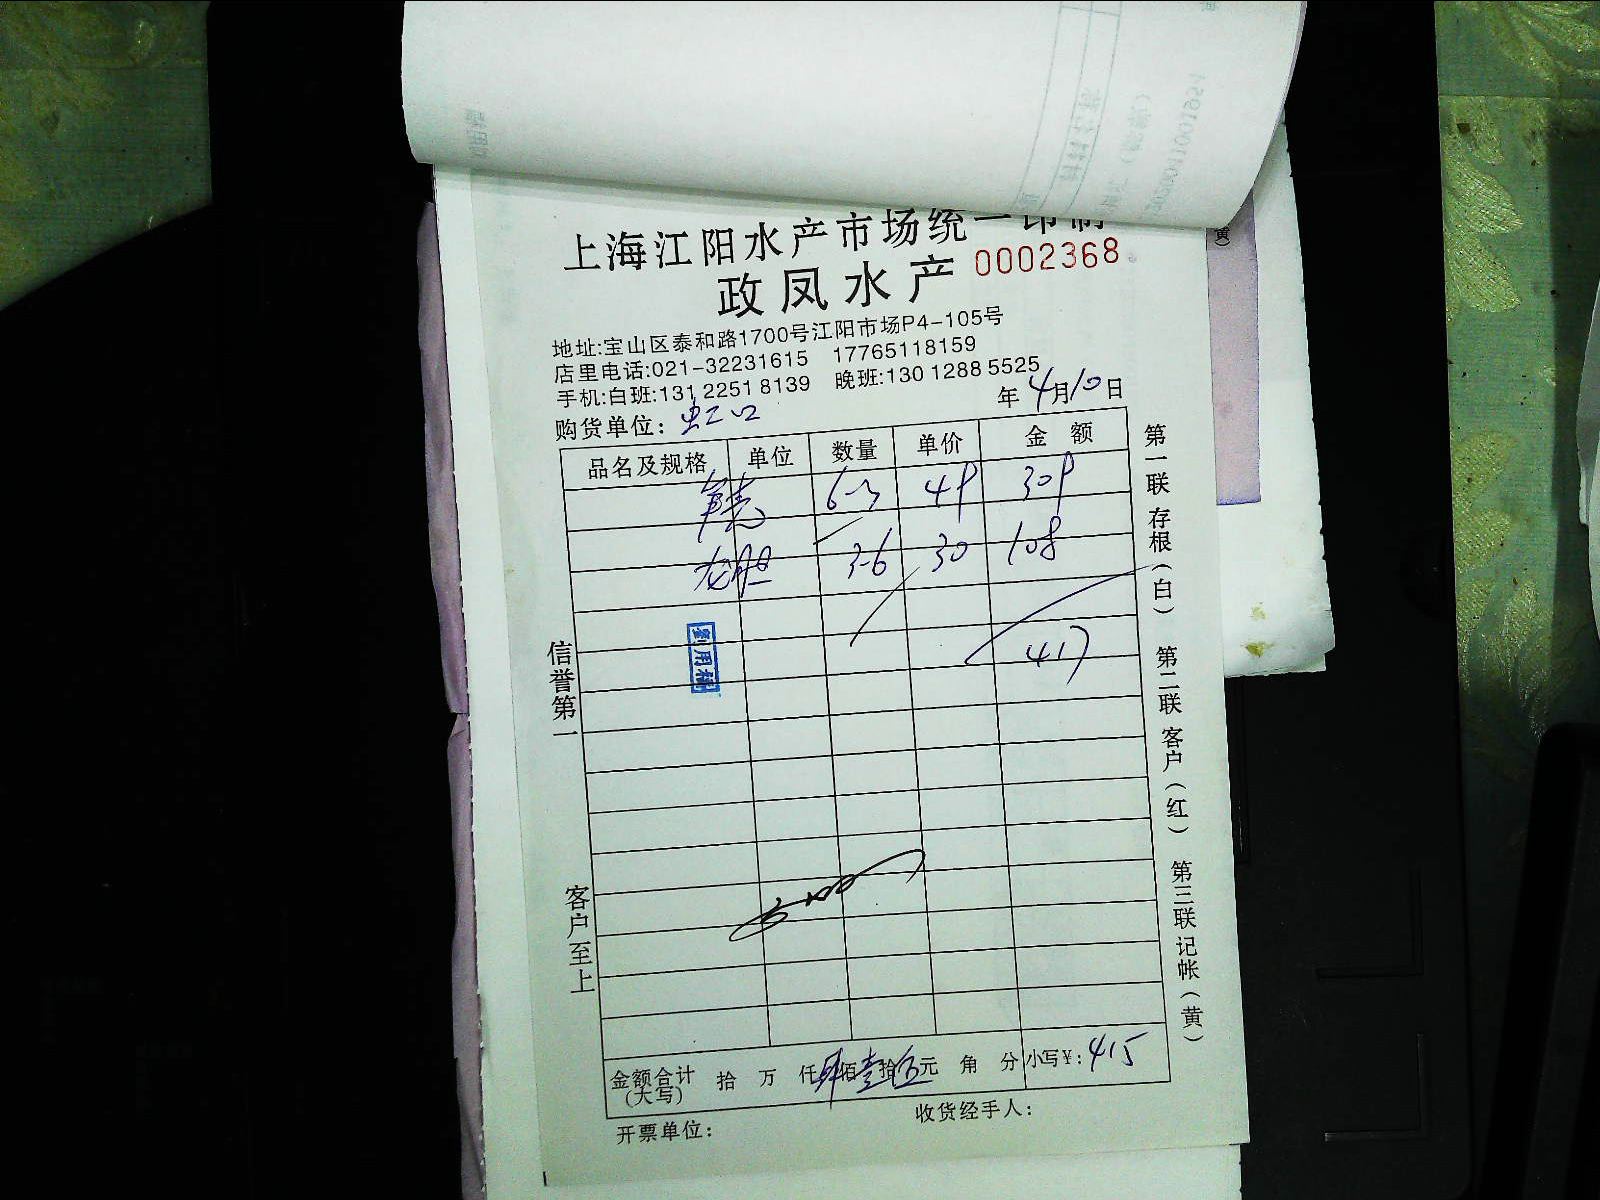 上海江阳水产市场统一印制
政凤水产 0002368
地址:宝山区泰和路1700号江阳市场P4-105号
店里电话:021-32231615 17765118159
手机:白班:131 2251 8139 晚班:130 1288 5525
年4月10日
购货单位: 虹口
品名及规格 单位 数量 单价 金额
6-3 49 309
龙胆 3-6 30 108
417
信誉第一
客户至上
第一联 存根(白) 第二联 客户(红) 第三联 记帐(黄)
金额合计(大写) 拾 万 仟 肆佰 壹拾 伍元 角 分 小写¥: 415
开票单位: 收货经手人:
(黄)